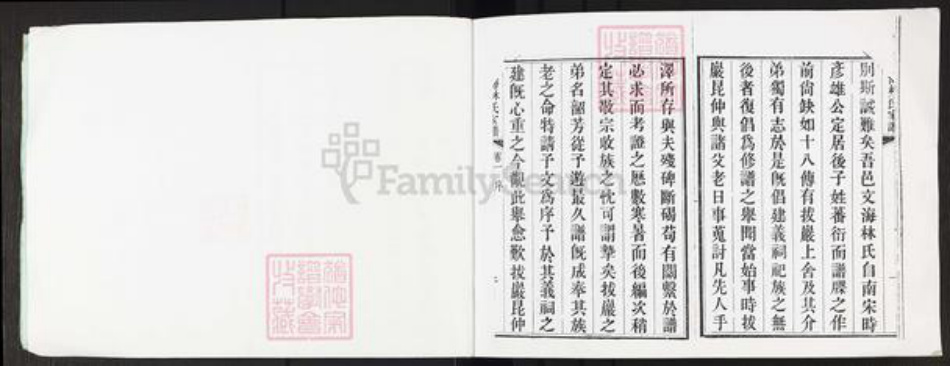 別斯誠難矣吾邑文海林氏自南宋時
彥雄公定居後子姓蕃衍而譜牒之作
前尙缺如十八傳有拔巖上舍及其介
弟獨有志於是旣倡建義祠祀族之無
後者復倡爲修譜之舉聞當始事時拔
巖昆仲與諸父老日事蒐討凡先人手
澤所存與夫殘碑斷碣苟有關繫於譜
必求而考證之歷數寒暑而後編次稍
定其敬宗收族之忱可謂摯矣拔巖之
弟名韶芳從予遊最久譜旣成奉其族
老之命特請予文爲序予於其義祠之
建旣心重之今觀此舉愈歎拔巖昆仲
林氏家譜
卷一
FamilySearch